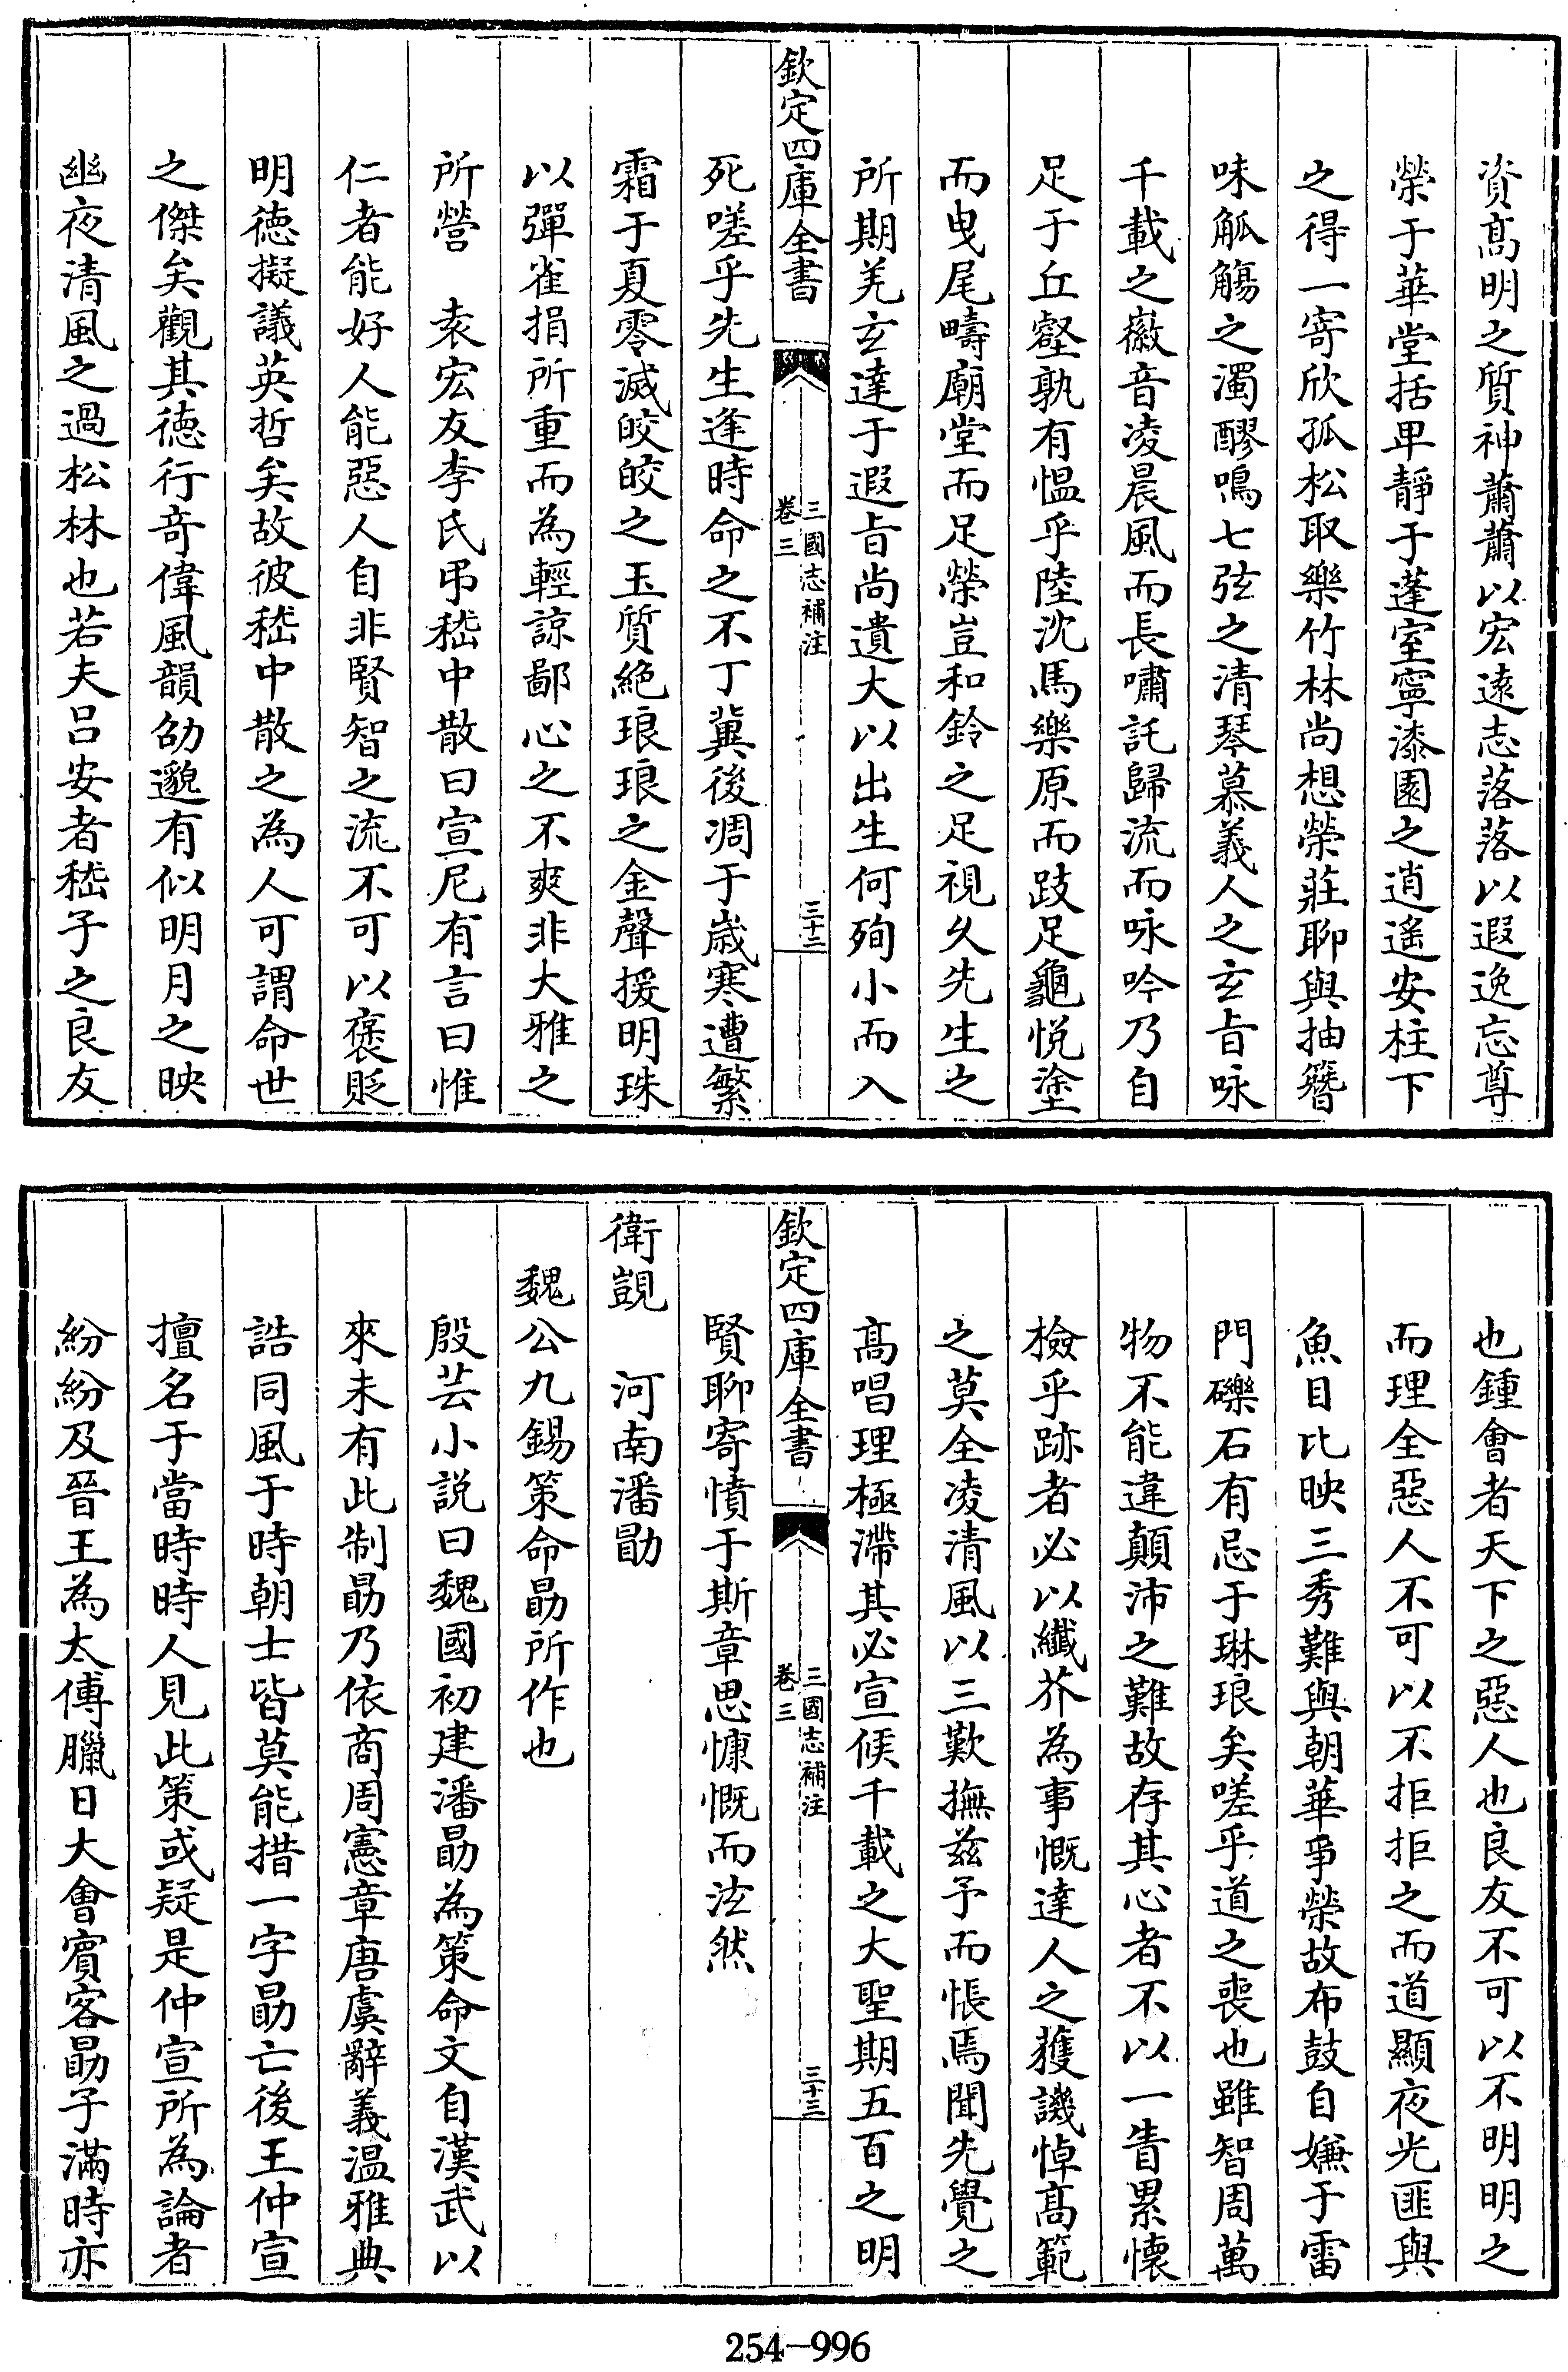 資髙明之質神蕭蕭以宏逺志落落以遐逸忘尊
榮于華堂括卑靜于蓬室寧漆園之逍遥安柱下
之得一寄欣孤松取樂竹林尚想榮莊聊與抽簪
味觚觴之濁醪鳴七弦之清琴慕義人之玄㫖咏
千載之徽音凌晨風而長嘯託歸流而咏吟乃自
足于丘壑孰有愠乎陸沈馬樂原而跂足龜悦塗
而曳尾疇廟堂而足榮豈和鈴之足視久先生之
所期羌玄達于遐㫖尚遺大以出生何殉小而入
欽定四庫全書
三國志補注
卷三
三十二
死嗟乎先生逢時命之不丁冀後凋于嵗寒遭繁
霜于夏零滅皎皎之玉質絶琅琅之金聲援明珠
以彈雀捐所重而為輕諒鄙心之不爽非大雅之
所營　袁宏友李氏弔嵇中散曰宣尼有言曰惟
仁者能好人能惡人自非賢智之流不可以襃貶
明徳擬議英哲矣故彼嵇中散之為人可謂命世
之傑矣觀其徳行竒偉風韻劭邈有似明月之映
幽夜清風之過松林也若夫吕安者嵇子之良友
也鍾會者天下之惡人也良友不可以不明明之
而理全惡人不可以不拒拒之而道顯夜光匪與
魚目比映三秀難與朝華爭榮故布鼓自嫌于雷
門礫石有忌于琳琅矣嗟乎道之喪也雖智周萬
物不能違顛沛之難故存其心者不以一眚累懷
檢乎跡者必以纖芥為事慨達人之獲譏悼髙範
之莫全凌清風以三歎撫兹予而悵焉聞先覺之
髙唱理極滯其必宣候千載之大聖期五百之明
欽定四庫全書
三國志補注
卷三
三十三
賢聊寄憤于斯章思慷慨而泫然
衛覬　河南潘勖
魏公九錫策命勗所作也
殷芸小説曰魏國初建潘勗為策命文自漢武以
來未有此制勗乃依商周憲章唐虞辭義温雅典
誥同風于時朝士皆莫能措一字勗亡後王仲宣
擅名于當時時人見此策或疑是仲宣所為論者
紛紛及晉王為太傅臘日大㑹賓客勗子滿時亦
254-996